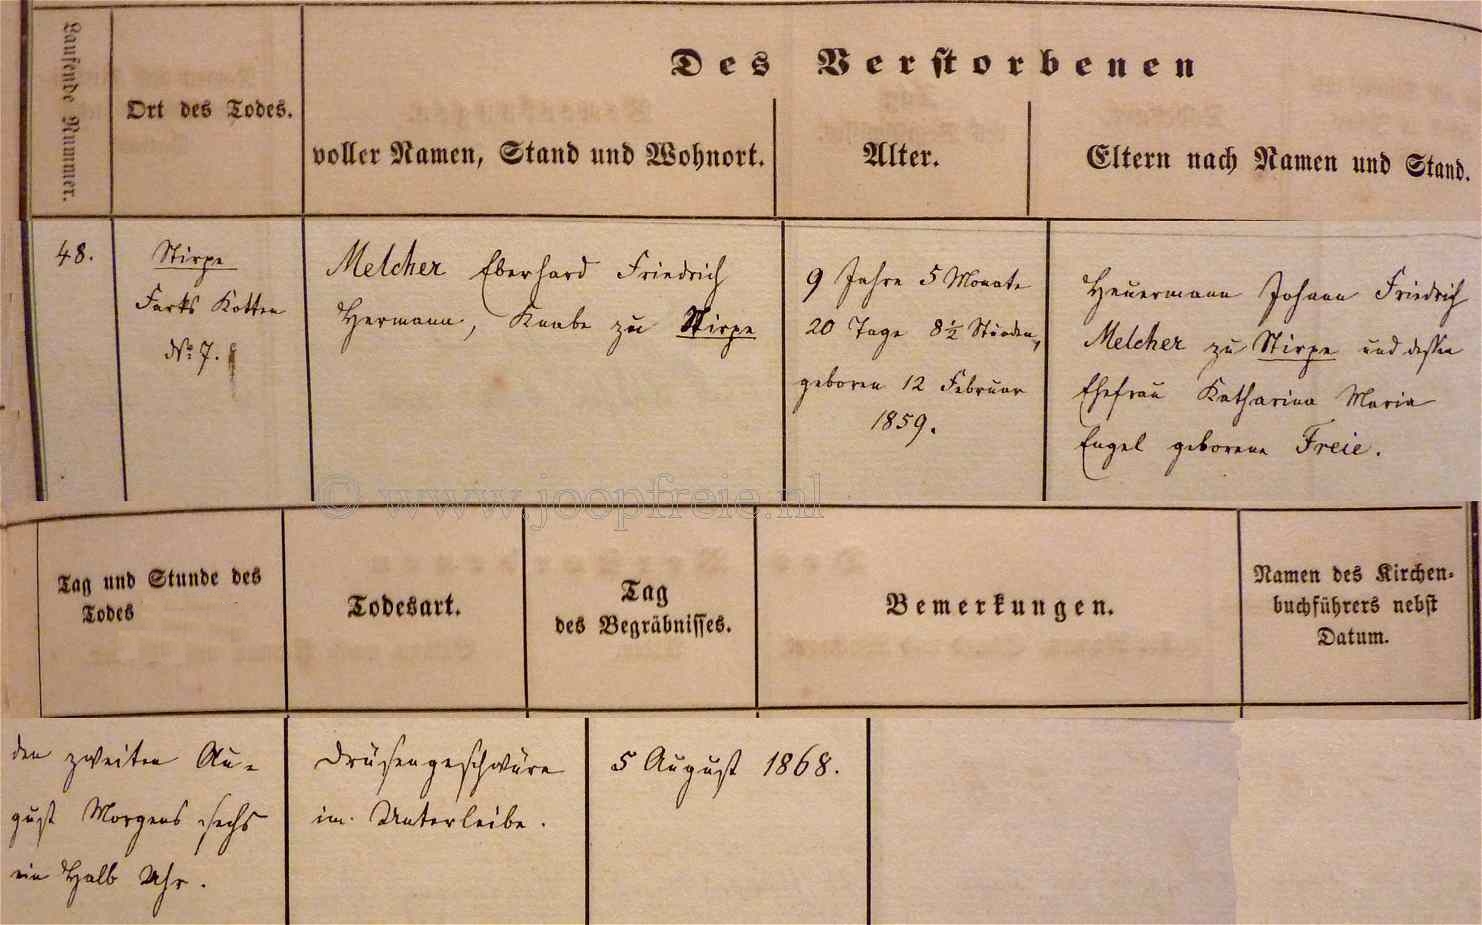 Laufende Nummer.
Ort des Todes.
Des Verstorbenen
voller Namen, Stand und Wohnort.
Alter.
Eltern nach Namen und Stand.
48.
Stirpe
Farks Kotten
No: 7.
Melcher Eberhard Friedrich
Hermann, Knabe zu Stirpe
9 Jahre 5 Monate
20 Tage 8½ Stunden,
geboren 12 Februar
1859.
Heuermann Johann Friedrich
Melcher zu Stirpe und dessen
Ehefrau Katharina Maria
Engel geborene Freie.
© www.joopfreie.nl
Tag und Stunde des
Todes
Todesart.
Tag
des Begräbnisses.
Bemerkungen.
Namen des Kirchen-
buchführers nebst
Datum.
den zweiten Au-
gust Morgens sechs
ein Halb Uhr.
Drüsengeschwüre
im Unterleibe.
5 August 1868.